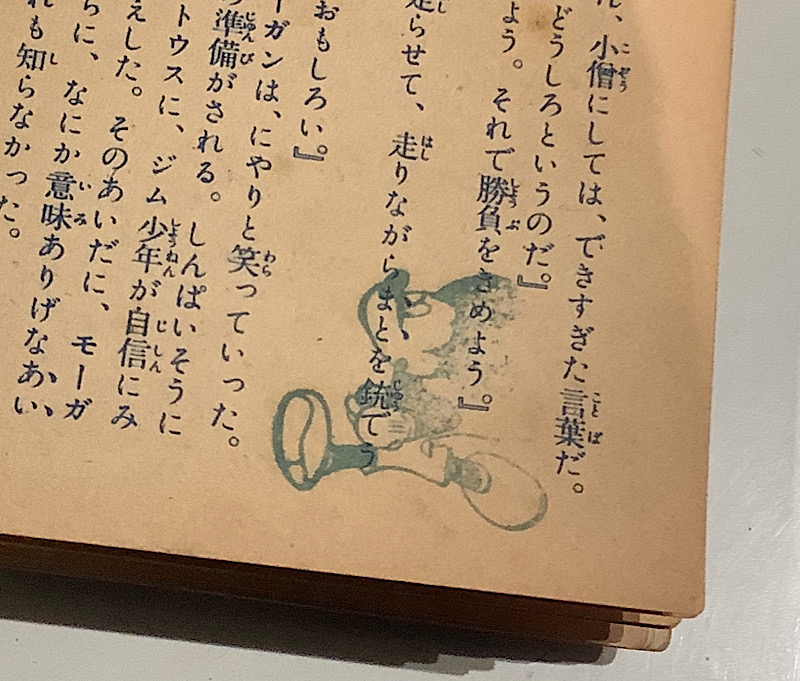 ん、小僧にしては、できすぎた言葉だ。
どうしろというのだ。』
よう。それで勝負をきめよう。』
走らせて、走りながらまとを銃でう
おもしろい。』
ーガンは、にやりと笑っていった。
準備がされる。しんぱいそうに
トウスに、ジム少年が自信にみ
えした。そのあいだに、モーガ
らに、なにか意味ありげなあい
れも知らなかった。